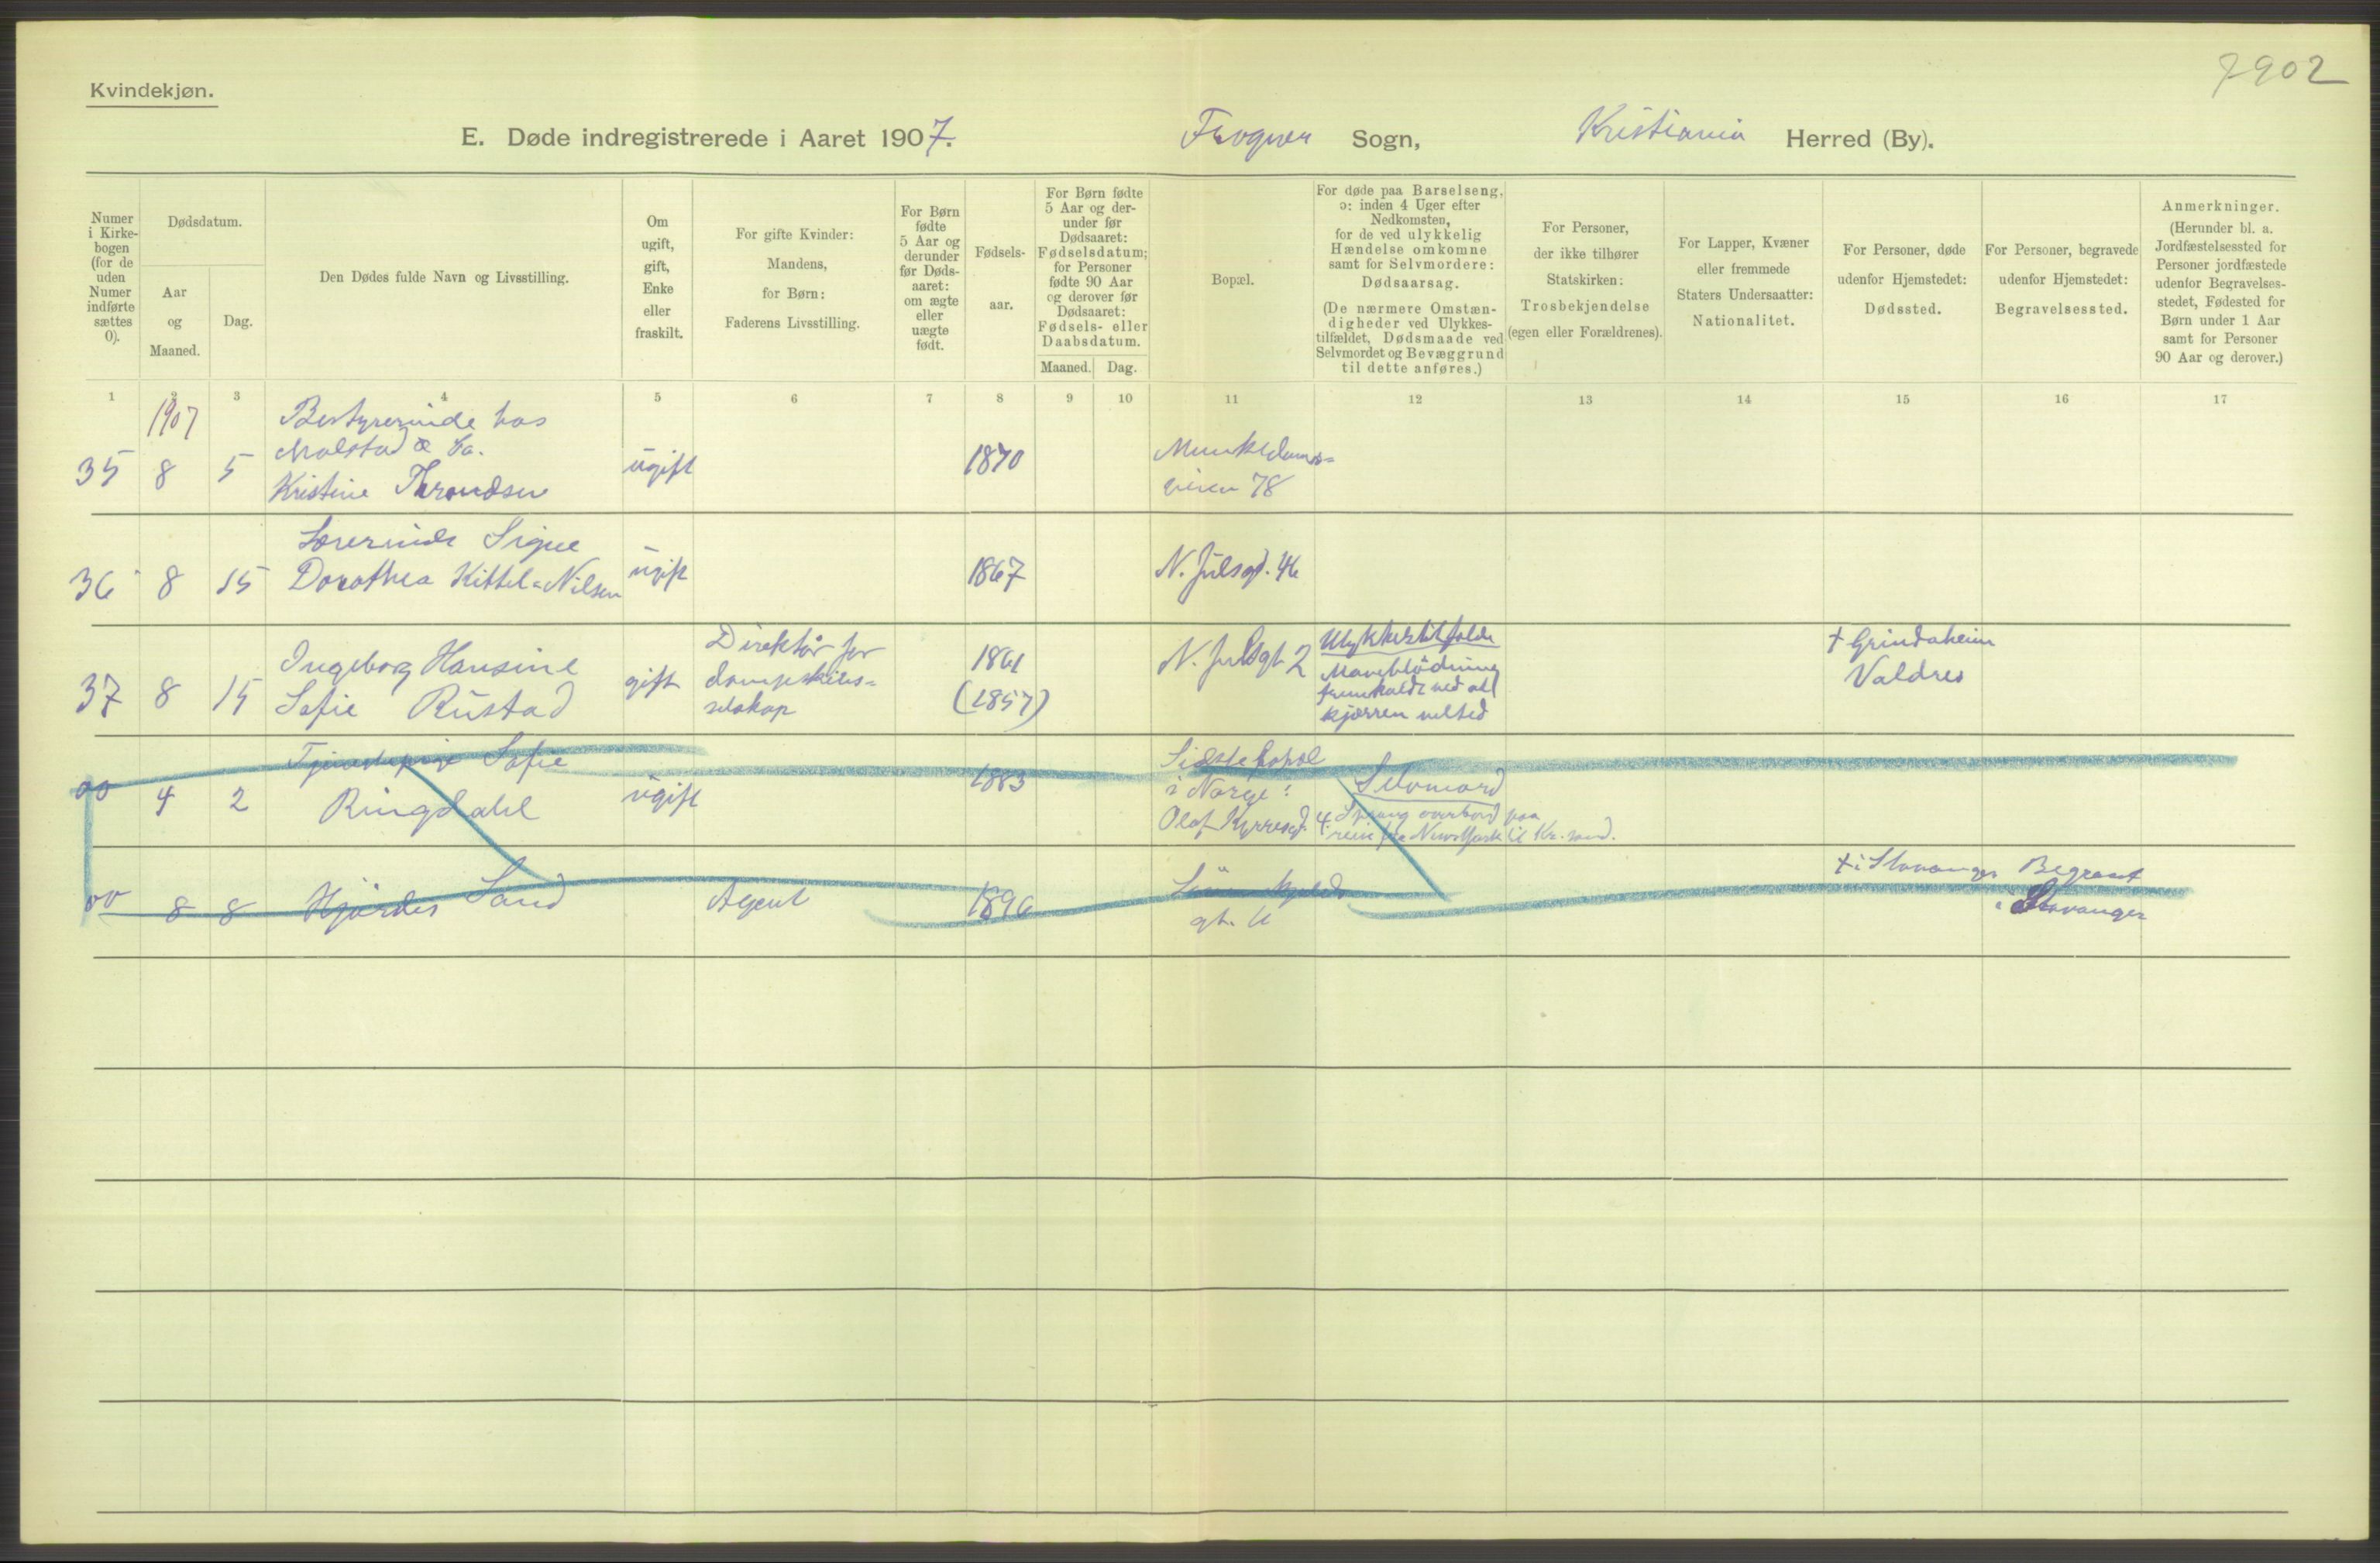 7902
Kvindekjøn.
E. Døde indregistrerede i Aaret 1907. Frogner Sogn, Kristiania Herred (By).
Numer
i Kirke-
bogen
(for de
uden
Numer
indførte
sættes
0).
Dødsdatum.
Aar
og
Maaned.
Dag.
Den Dødes fulde Navn og Livsstilling.
Om
ugift,
gift,
Enke
eller
fraskilt.
For gifte Kvinder:
Mandens,
for Børn:
Faderens Livsstilling.
For Børn
fødte
5 Aar og
derunder
før Døds-
aaret:
om ægte
eller
uægte
født.
Fødsels-
aar.
For Børn fødte
5 Aar og der-
under før
Dødsaaret:
Fødselsdatum;
for Personer
fødte 90 Aar
og derover før
Dødsaaret:
Fødsels- eller
Daabsdatum.
Maaned. Dag.
Bopæl.
For døde paa Barselseng,
ɔ: inden 4 Uger efter
Nedkomsten,
for de ved ulykkelig
Hændelse omkomne
samt for Selvmordere:
Dødsaarsag.
(De nærmere Omstæn-
digheder ved Ulykkes-
tilfældet, Dødsmaade ved
Selvmordet og Bevæggrund
til dette anføres.)
For Personer,
der ikke tilhører
Statskirken:
Trosbekjendelse
(egen eller Forældrenes).
For Lapper, Kvæner
eller fremmede
Staters Undersaatter:
Nationalitet.
For Personer, døde
udenfor Hjemstedet:
Dødssted.
For Personer, begravede
udenfor Hjemstedet:
Begravelsessted.
Anmerkninger.
(Herunder bl. a.
Jordfæstelsessted for
Personer jordfæstede
udenfor Begravelses-
stedet, Fødested for
Børn under 1 Aar
samt for Personer
90 Aar og derover.)
1 2 3 4 5 6 7 8 9 10 11 12 13 14 15 16 17
1907
Bestyrerinde hos
Molstad & Co.
35 8 5 Kristine Throndsen ugift 1870
Munkedams-
veien 78
Lærerinde Signe
36 8 15 Dorothea Kittel-Nilsen ugift 1867 N. Julsgt. 46
37 8 15
Ingeborg Hansine
Sofie Rustad
gift
Direktør for
dampskibs-
selskap
1861
(1857)
N. Julsgt. 2
Ulykkestilfælde
Maveblødning
fremkaldt ved at
kjærren veltet
† Grindaheim
Valdres
00 4 2
Tjenestepige Sofie
Ringdahl
ugift
1883
Sidste bopæl
i Norge:
Olaf Kyrresgt. 4
Selvmord
Sprang overbord paa
reise fra New York til Kr.sand.
00 8 8 Hjørdis Sand Agent 1896
gt. 11
† i Stavanger
Begravet
i Stavanger